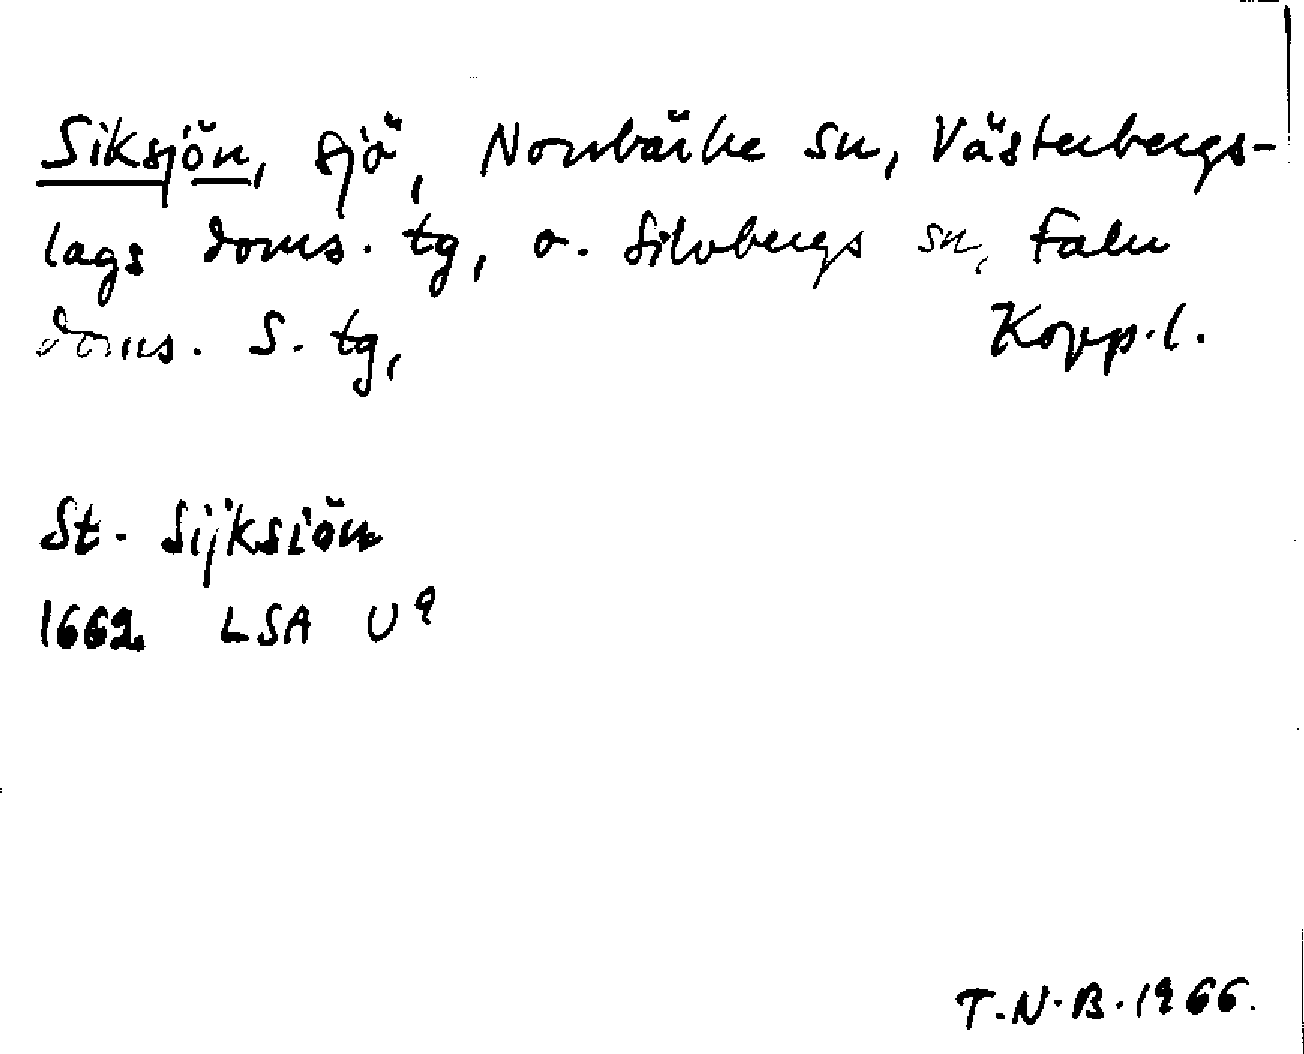 Siksjön, sjö, Norrbärke sn, Västerbergs-
lags doms. tg, o. Silvbergs sn, Falu
doms. S. tg, Kopp.l.
St. Sijksiön
1662 LSA U9
T.N.B. 1966.